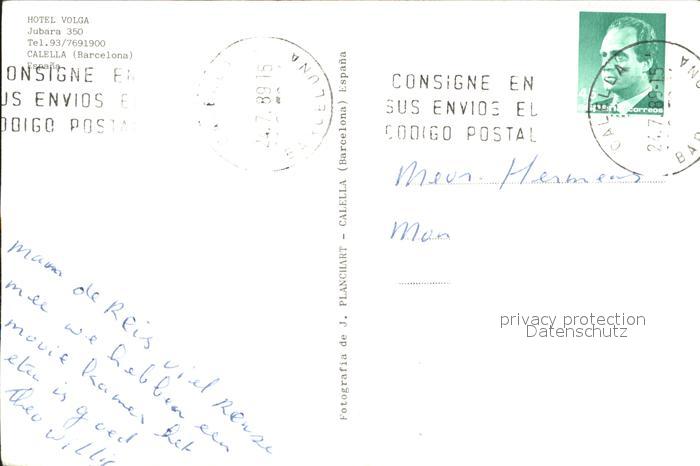 HOTEL VOLGA
Jubara 350
Tel.93/7691900
CALELLA (Barcelona)
España
CONSIGNE EN
SUS ENVIOS EL
CODIGO POSTAL
24.7.89-15
BARCELONA
CONSIGNE EN
SUS ENVIOS EL
CODIGO POSTAL
CALELLA
24.7.89-15
correos
Mevr. Hermens
Mam de Reis viel
mee we hebben een
mooie kamer het
eten is goed
Theo Willy
Fotografía de J. PLANCHART - CALELLA (Barcelona) España
privacy protection
Datenschutz